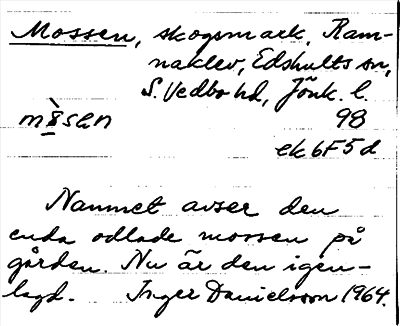 Mossen, skogsmark, Ram-
naklev, Edshults sn,
S. Vedbo hd, Jönk. l.
98
ek 6F5d
Namnet avser den
enda odlade mossen på
gården. Nu är den igen-
lagd. Inger Danielsson 1964.